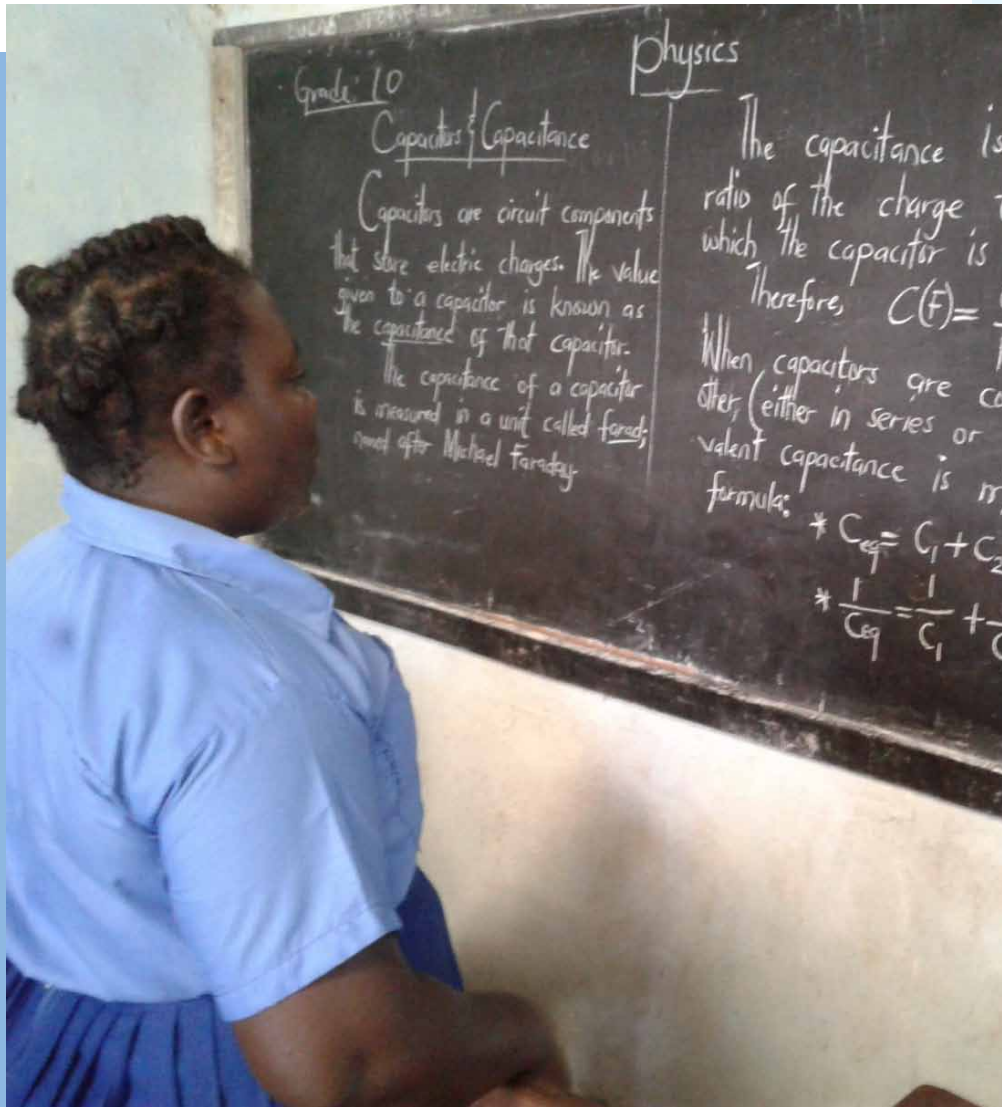 Physics
Grade: 10
Capacitors & Capacitance
Capacitors are circuit components
that store electric charges. The value
given to a capacitor is known as
the capacitance of that capacitor.
The capacitance of a capacitor
is measured in a unit called farad;
named after Michael Faraday
The capacitance is
ratio of the charge
which the capacitor is
Therefore, C(F)=
When capacitors are
other, (either in series or
valent capacitance is
formula:
* Ceq = C1 + C2
* 1/Ceq = 1/C1 +